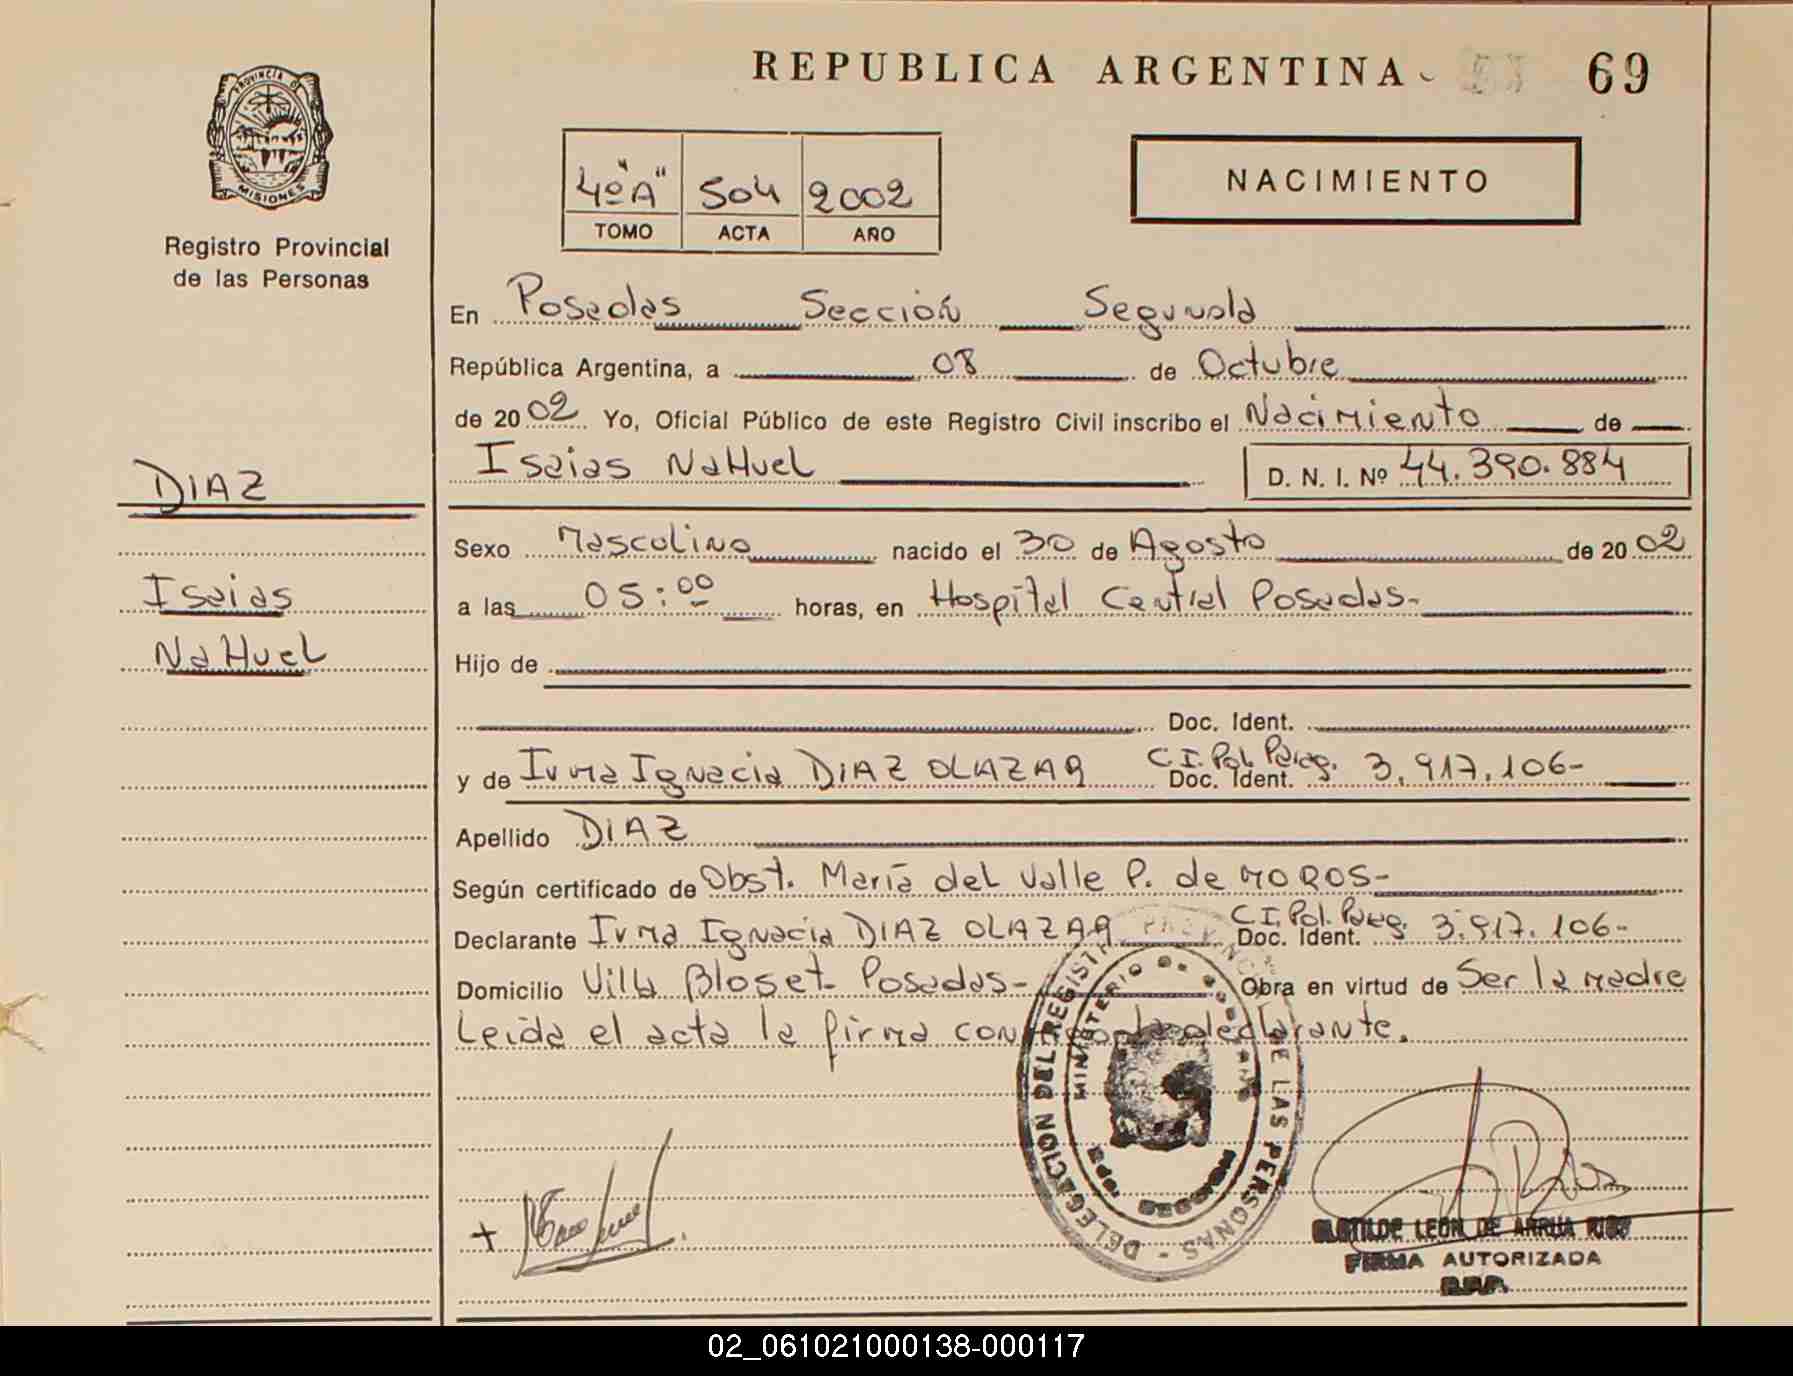 REPUBLICA ARGENTINA 69
PROVINCIA DE
MISIONES
Registro Provincial
de las Personas
4º "A" 504 2002
TOMO ACTA AÑO
NACIMIENTO
En Posadas Sección Segunda
República Argentina, a 08 de Octubre
de 2002 Yo, Oficial Público de este Registro Civil inscribo el Nacimiento de
Isaias NaHueL D. N. I. Nº 44.390.884
DIAZ
Isaias
NaHueL
Sexo Mascolino nacido el 30 de Agosto de 2002
a las 05:00 horas, en Hospital Central Posadas-
Hijo de
Doc. Ident.
y de Irma Ignacia DIAZ OLAZAR C.I. Pol. Parag. Doc. Ident. 3.917.106-
Apellido DIAZ
Según certificado de Obst. María del Valle P. de MOROS-
Declarante Irma Ignacia DIAZ OLAZAR C.I. Pol. Parag. Doc. Ident. 3.917.106-
Domicilio Villa Bloset- Posadas- Obra en virtud de Ser la madre
Leida el acta la firma conmigo la declarante.
DELEGACION DEL REGISTRO PROVINCIAL DE LAS PERSONAS
MINISTERIO DE GOBIERNO
CLOTILDE LEON DE ARRUA RIOS
FIRMA AUTORIZADA
02_061021000138-000117